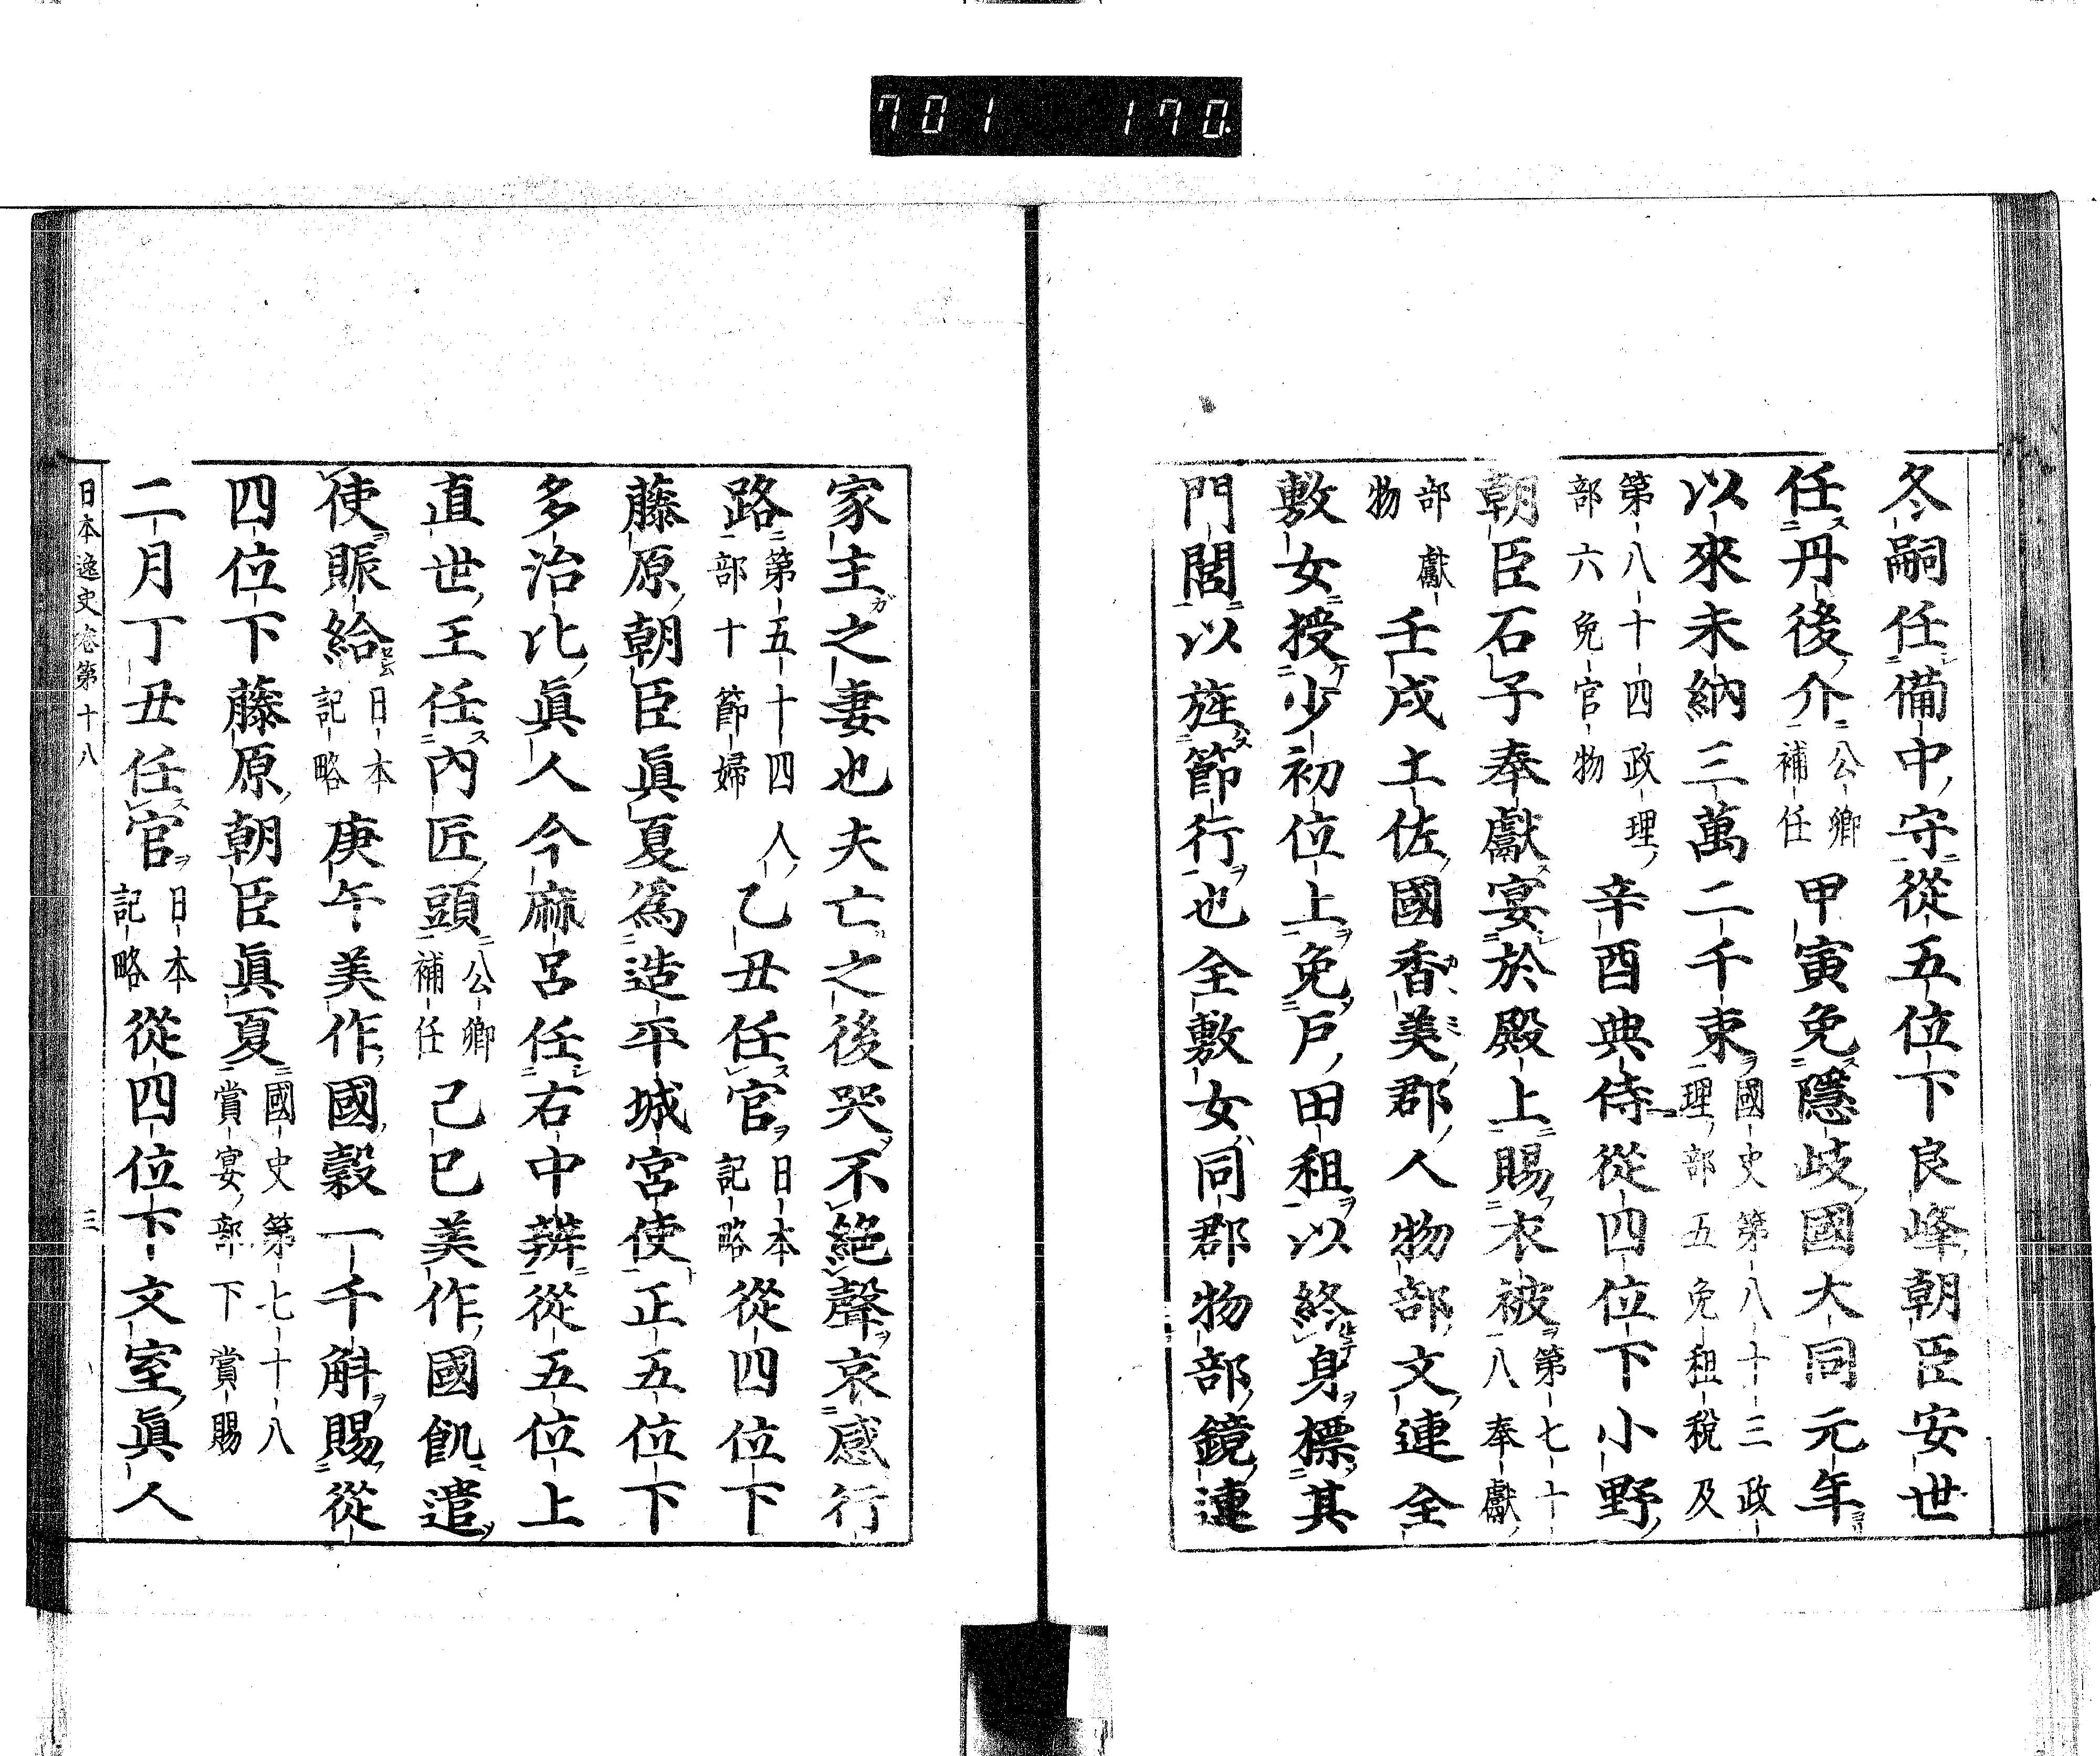 701 170.
冬嗣任備中守從五位下良峰朝臣安世
任丹後介公卿補任甲寅免隱岐國大同元年
以來未納三萬二千束國史第八十三政理部五免租税及
第八十四政理部六免官物辛酉典侍從四位下小野
朝臣石子奉獻宴於殿上賜衣被第七十八奉獻
部獻物壬戌土佐國香美郡人物部文連全
敷女授少初位上免戸田租以終身標其
門閭以旌節行也全敷女同郡物部鏡連
家主之妻也夫亡之後哭不絶聲哀感行
路第五十四人部十節婦乙丑任官日本記略從四位下
藤原朝臣眞夏爲造平城宮使正五位下
多治比眞人今麻呂任右中辨從五位上
直世王任内匠頭公卿補任己巳美作國飢遣
使賑給日本記略庚午美作國穀一千斛賜從
四位下藤原朝臣眞夏國史第七十八賞宴部下賞賜
二月丁丑任官日本記略從四位下文室眞人
日本逸史卷第十八 三